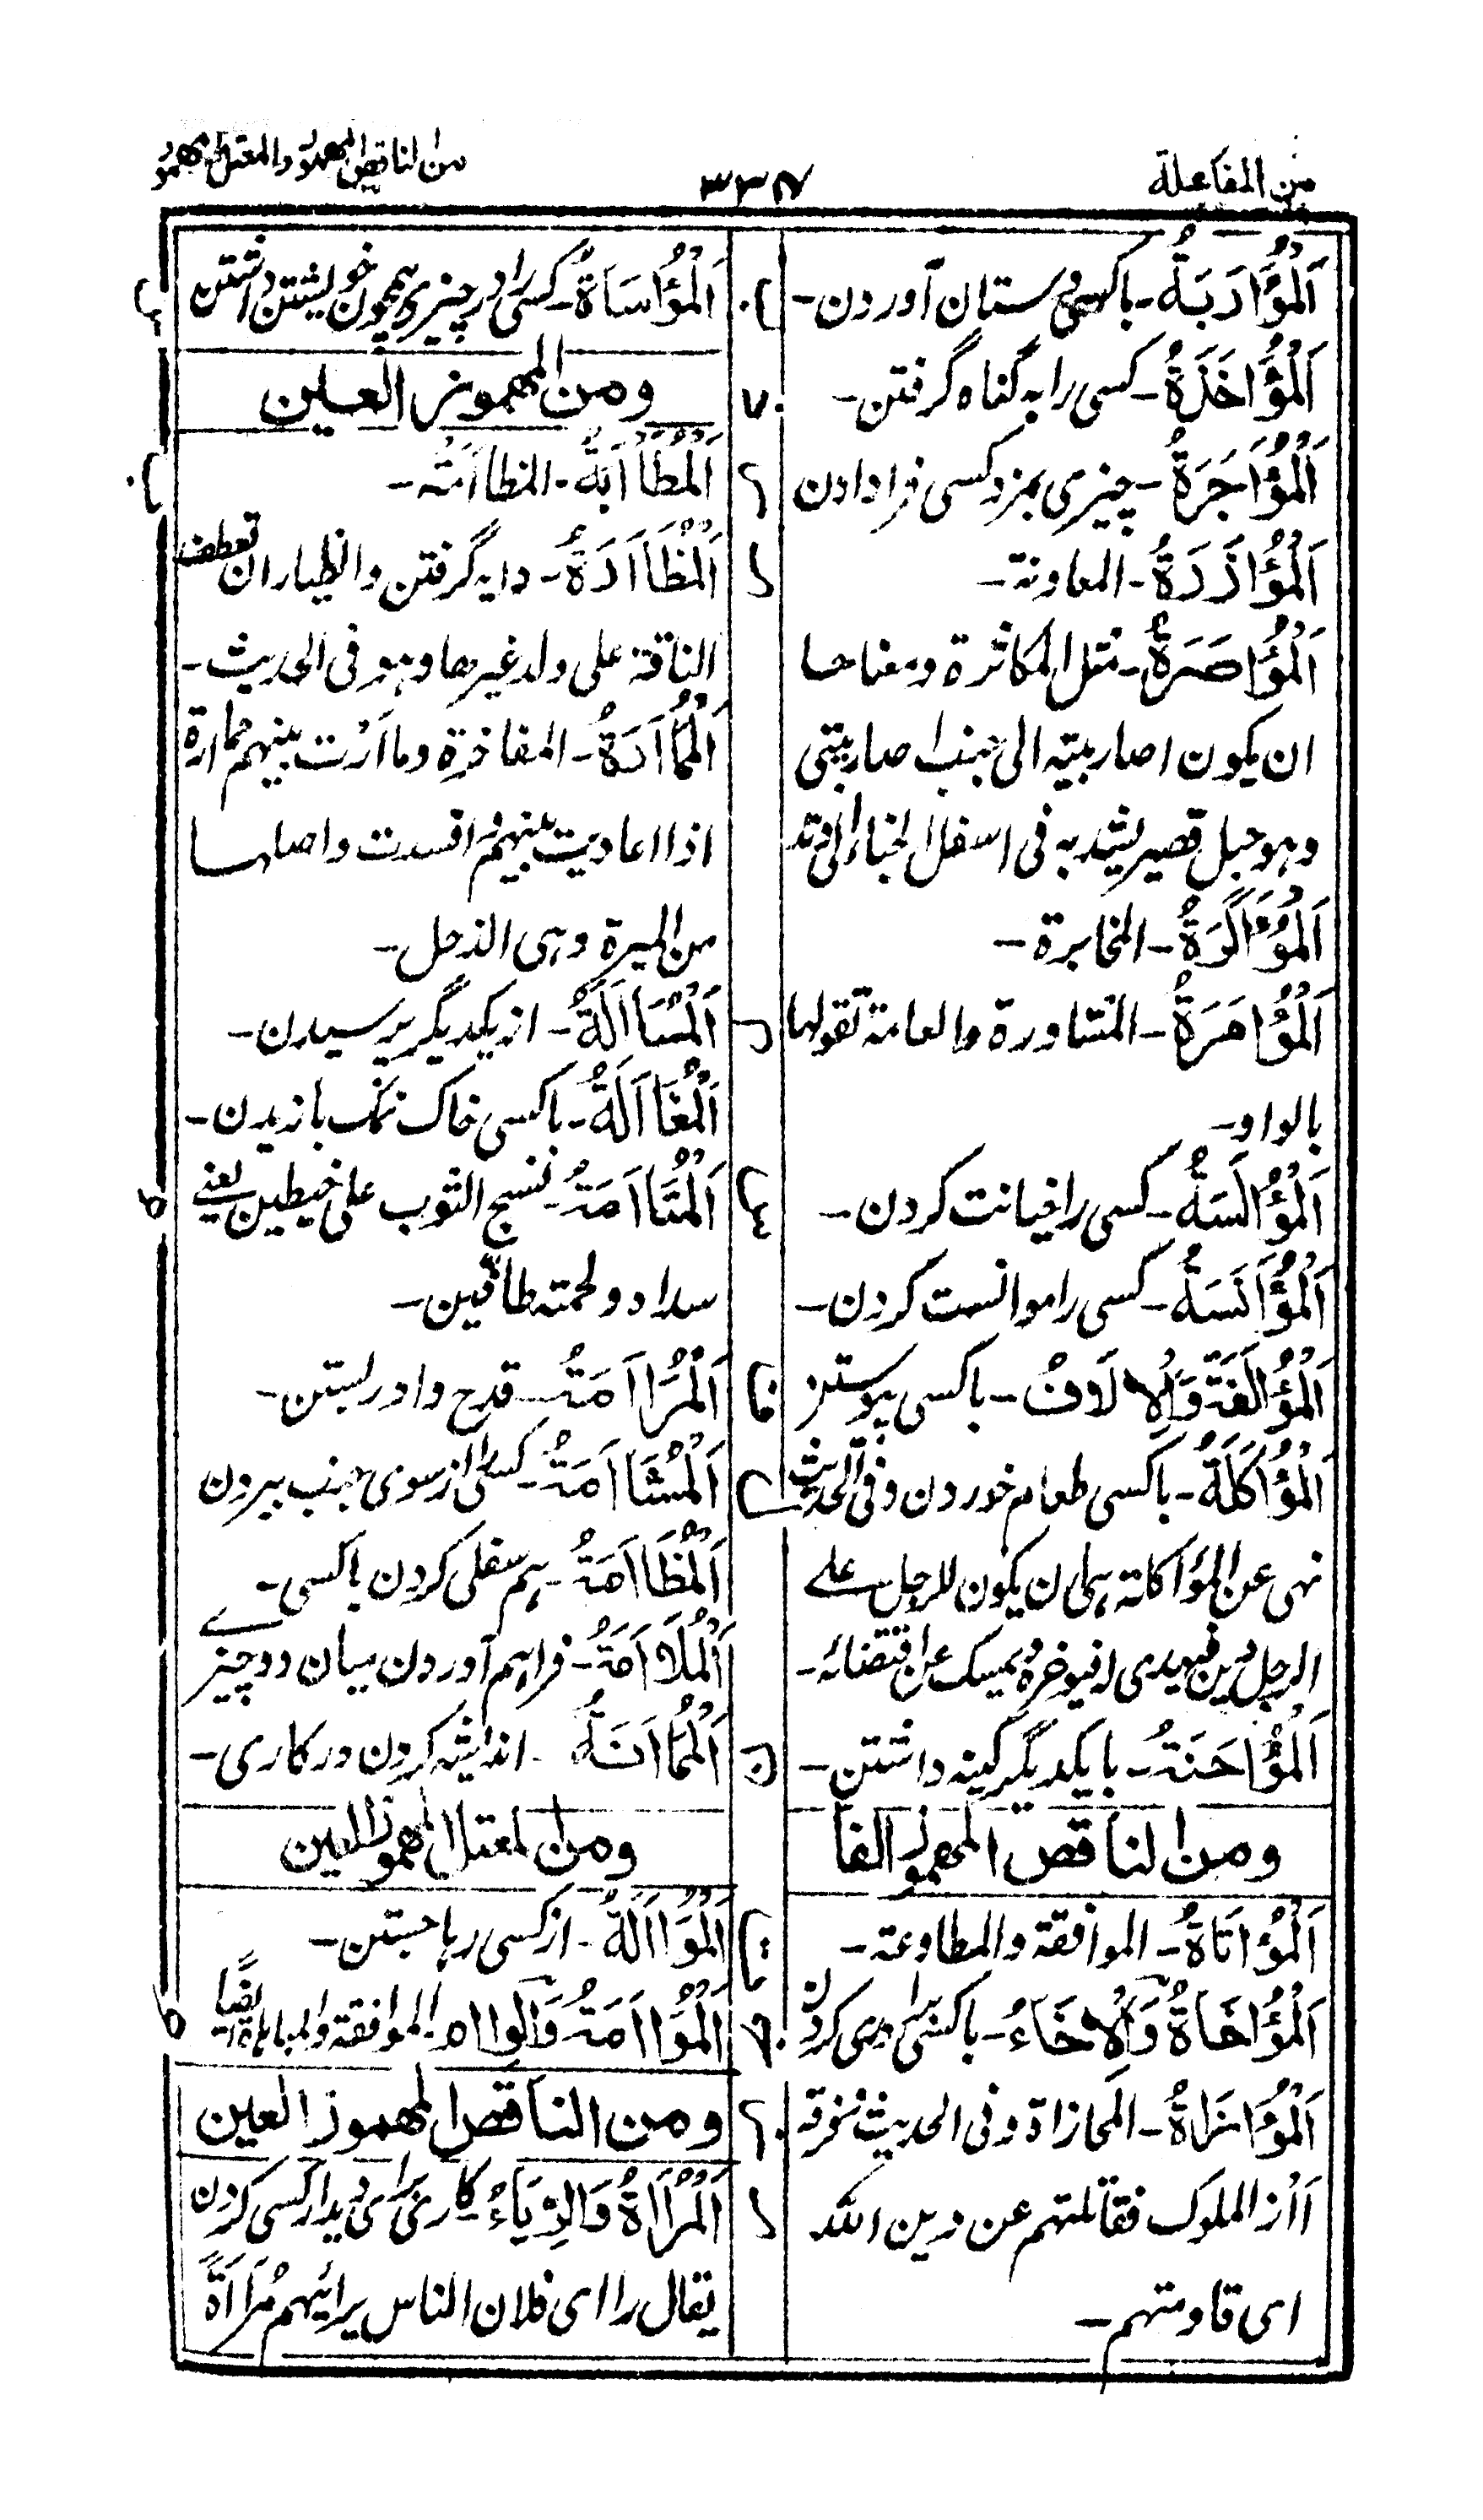 من المفاعلة
۳۳۸
من الناقص المهموز والمعتل المهموز
اَلْمُؤَادَبَةُ - باکسی دستان آوردن -
ب
اَلْمُؤَاخَذَةُ - کسی را به گناه گرفتن -
اَلْمُؤَاجَرَةُ - چیزی بمزد کسی فرا دادن
اَلْمُؤَازَرَةُ - المعاونة -
ر
اَلْمُؤَاصَرَةُ - مثل المکاثرة ومعناها
ان یکون اصار بیته الی جنب اصار بیتی
وهو حبل قصیر یشد به فی اسفل الخباء الی وتد
اَلْمُؤَاكَرَةُ - المخابرة -
اَلْمُؤَامَرَةُ - المشاورة والعامة تقولها
بالواو -
اَلْمُؤَالَسَةُ - کسی را خیانت کردن -
اَلْمُؤَانَسَةُ - کسی را موانست کردن -
اَلْمُؤَالَفَةُ وَالْاِلَافُ - باکسی پیوستن
ف
اَلْمُؤَاكَلَةُ - باکسی طعام خوردن وفی الحدیث
ل
نهی عن المؤاکلة هی ان یکون للرجل علی
الرجل دین فیهدی الیه فیؤخره ویمسک عن اقتضائه -
اَلْمُؤَاحَنَةُ - بایکدیگر کینه داشتن -
ن
ومن الناقص المهموز الفا
اَلْمُؤَاتَاةُ - الموافقة والمطاوعة -
ت
اَلْمُؤَاخَاةُ وَالْاِخَاءُ - باکسی برادری کردن
خ
اَلْمُؤَازَاةُ - المحازاة وفی الحدیث فرقة
اٰزت الملوک فقاتلتهم عن دین الله
ای قاومتهم -
اَلْمُؤَاسَاةُ - کسی را در چیزی همچون خویشتن داشتن
ومن المهموز العین
اَلْمُظَاأَبَةُ - المظاأمة -
ب
اَلْمُظَاأَرَةُ - دایه گرفتن والظیاران تعطف
الناقة علی ولد غیرها وهو فی الحدیث -
اَلْمُمَاأَرَةُ - المفاخرة وماأرت بینهم ممارة
اذا عادیت بینهم وافسدت واصلها
من المیرة وهی الذحل -
اَلْمُسَاأَلَةُ - از یکدیگر پرسیدن -
اَلْمُفَاأَلَةُ - باکسی خاک نمک بازیدن -
اَلْمُتَاأَمَةُ - نسج الثوب علی خیطین یعنی
سداه ولحمته طاقین -
اَلْمُرَاأَمَةُ - قدح وا در بستن -
اَلْمُشَاأَمَةُ - کسی را از سوی جنب بیرون
اَلْمُظَاأَمَةُ - هم سفلی کردن باکسی -
اَلْمُلَاأَمَةُ - فراهم آوردن میان دو چیز
اَلْمُمَاأَنَةُ - اندیشه کردن در کاری -
ومن المعتل المهموز العین
اَلْمُوَاأَلَةُ - از کسی رها جستن -
اَلْمُوَاأَمَةُ وَالْوِاام - الموافقة والمباهاة ایضاً
ومن الناقص المهموز العین
اَلْمُرَاأَةُ وَالرِّيَاءُ - کاری برای دیدار کسی کردن
یقال راای فلان الناس یرائیهم مُرَاأَةً